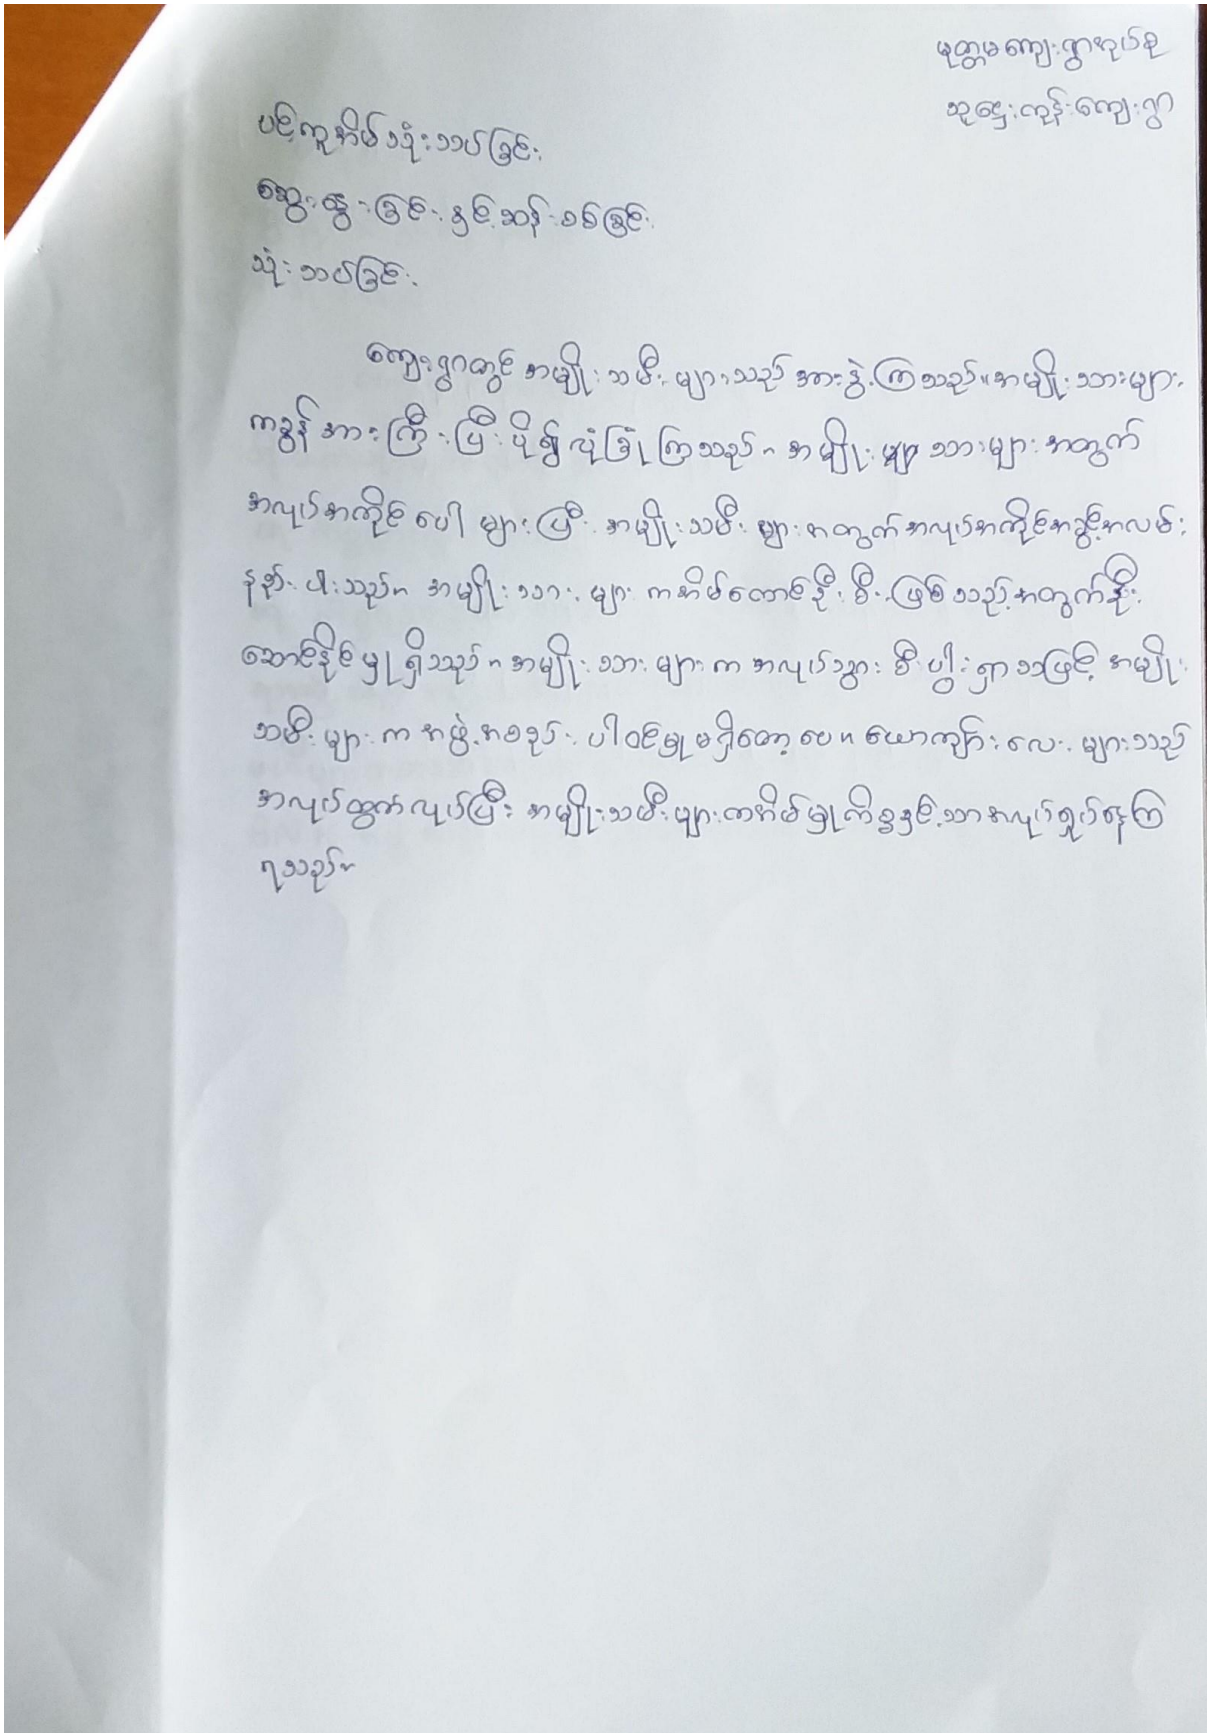 မုတ္တမကျေးရွာအုပ်စု
သူဌေးကုန်းကျေးရွာ
ပင့်ကူအိမ်သုံးသပ်ခြင်း
ဆွေးနွေးခြင်းနှင့်ဆန်းစစ်ခြင်း
သုံးသပ်ခြင်း
ကျေးရွာတွင် အမျိုးသမီးများသည် အားနွဲ့ကြသည်။ အမျိုးသားများ
ကခွန်အားကြီးပြီး ပို၍ လုံခြုံကြသည်။ အမျိုး သားများအတွက်
အလုပ်အကိုင်ပေါများပြီး အမျိုးသမီးများအတွက်အလုပ်အကိုင်အခွင့်အလမ်း
နည်းပါးသည်။ အမျိုးသားများ ကအိမ်ထောင်ဦးစီးဖြစ်သည့်အတွက်ဦး
ဆောင်နိုင်မှုရှိသည်။ အမျိုးသားများက အလုပ်သွား စီးပွါးရှာသဖြင့် အမျိုး
သမီးများက အဖွဲ့အစည်းပါဝင်မှုမရှိတော့ပေ။ ယောကျာ်းလေးများသည်
အလုပ်ထွက်လုပ်ပြီး အမျိုးသမီးများကအိမ်မှုကိစ္စနှင့်သာအလုပ်ရှုပ်နေကြ
ရသည်။